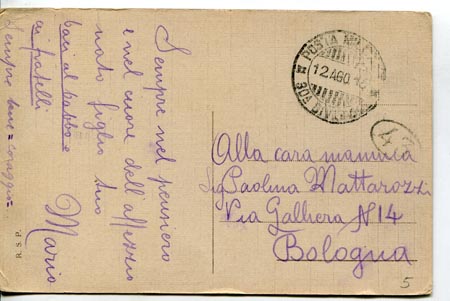 Sempre nel pensiero
e nel cuore dell'affezzio
nato figlio tuo
Mario
baci al babbo e
ai fratelli
Sempre bene = coraggio =
R. S. P.
POSTA
12 AGO
Alla cara mamma
Sig Paolina Mattarozzi
Via Galliera N 14
Bologna
5